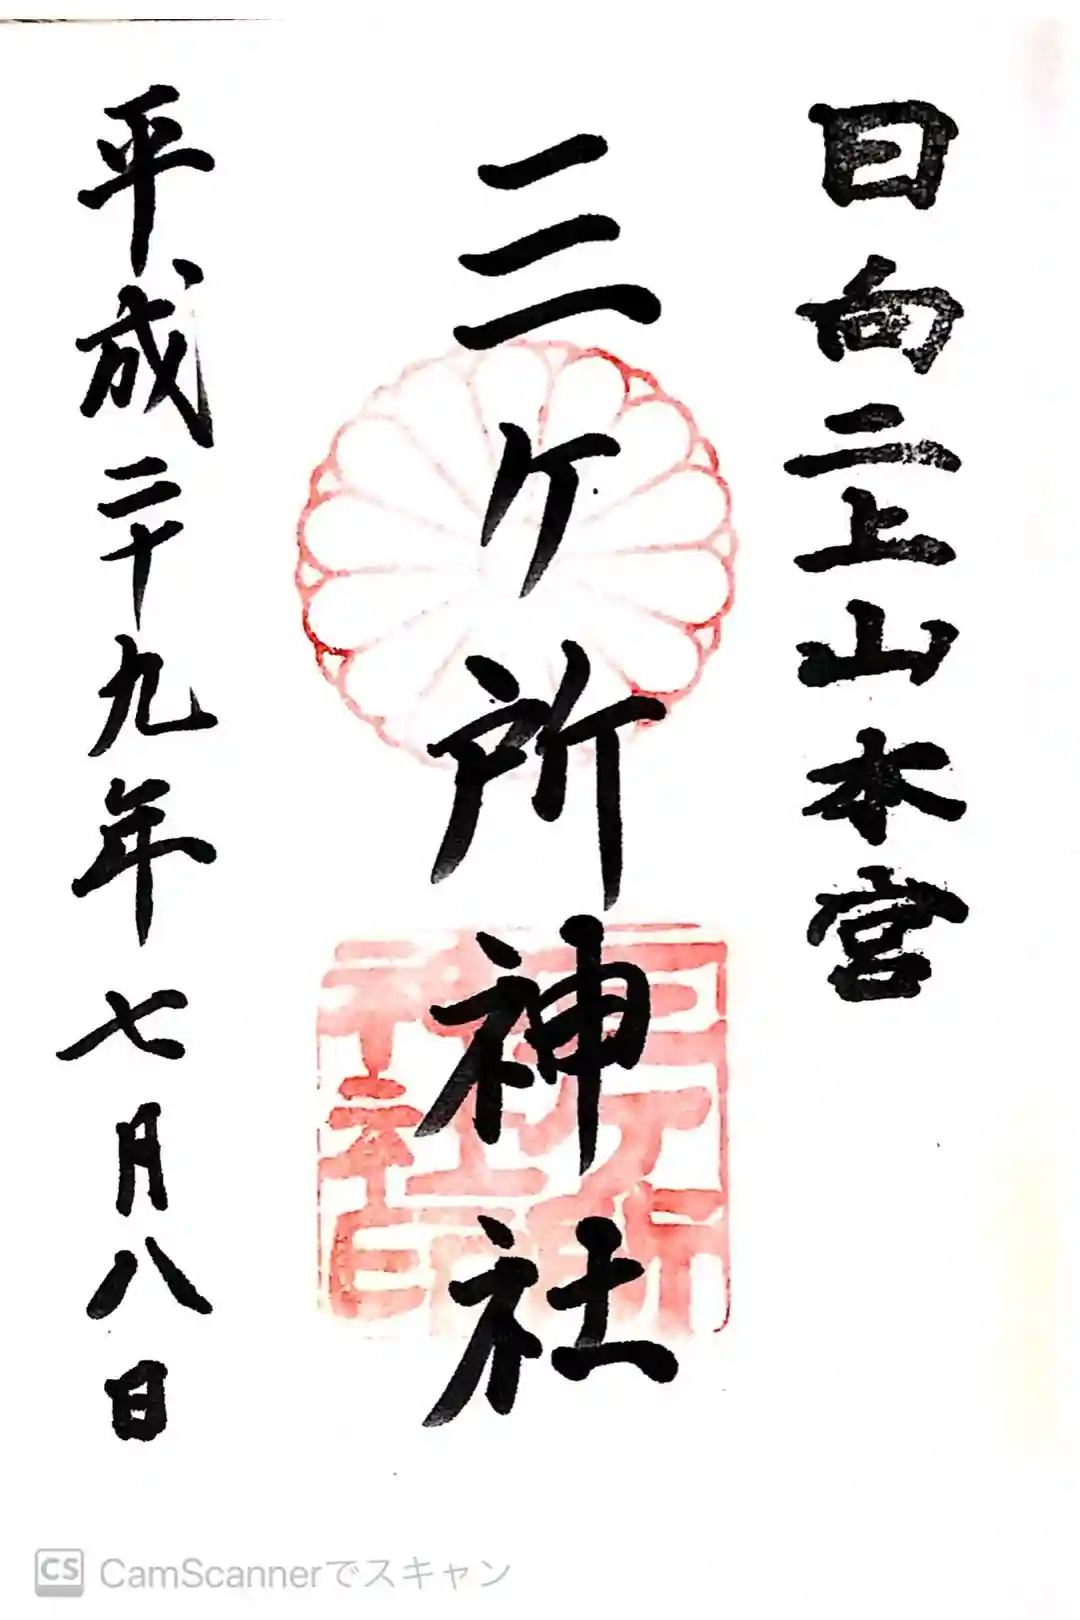 日向二上山本宮
三ヶ所神社
平成二十九年七月八日
CS CamScannerでスキャン